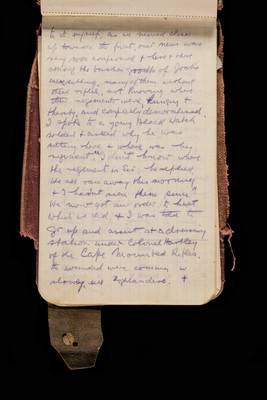 to it myself, as we moved close
up towards the front, our men were
very sore confused & here & there
among the bushes groups of Jocks
were sitting, many of them without
their rifles, not knowing where
their regiment were, hungry &
thirsty, and completely demoralised.
I spoke to a young Black Watch
soldier & asked why he was
sitting here & where was his
regiment. "I don't know where
the regiment is Sir" he replied
We all ran away this morning
& I hadn't seen them since"
We now got our order to halt
which we did & I was told to
go up and assist at a dressing
station under Colonel Hartley
of the Cape Mounted Rifles.
The wounded were coming in
slowly, all Highlanders. +